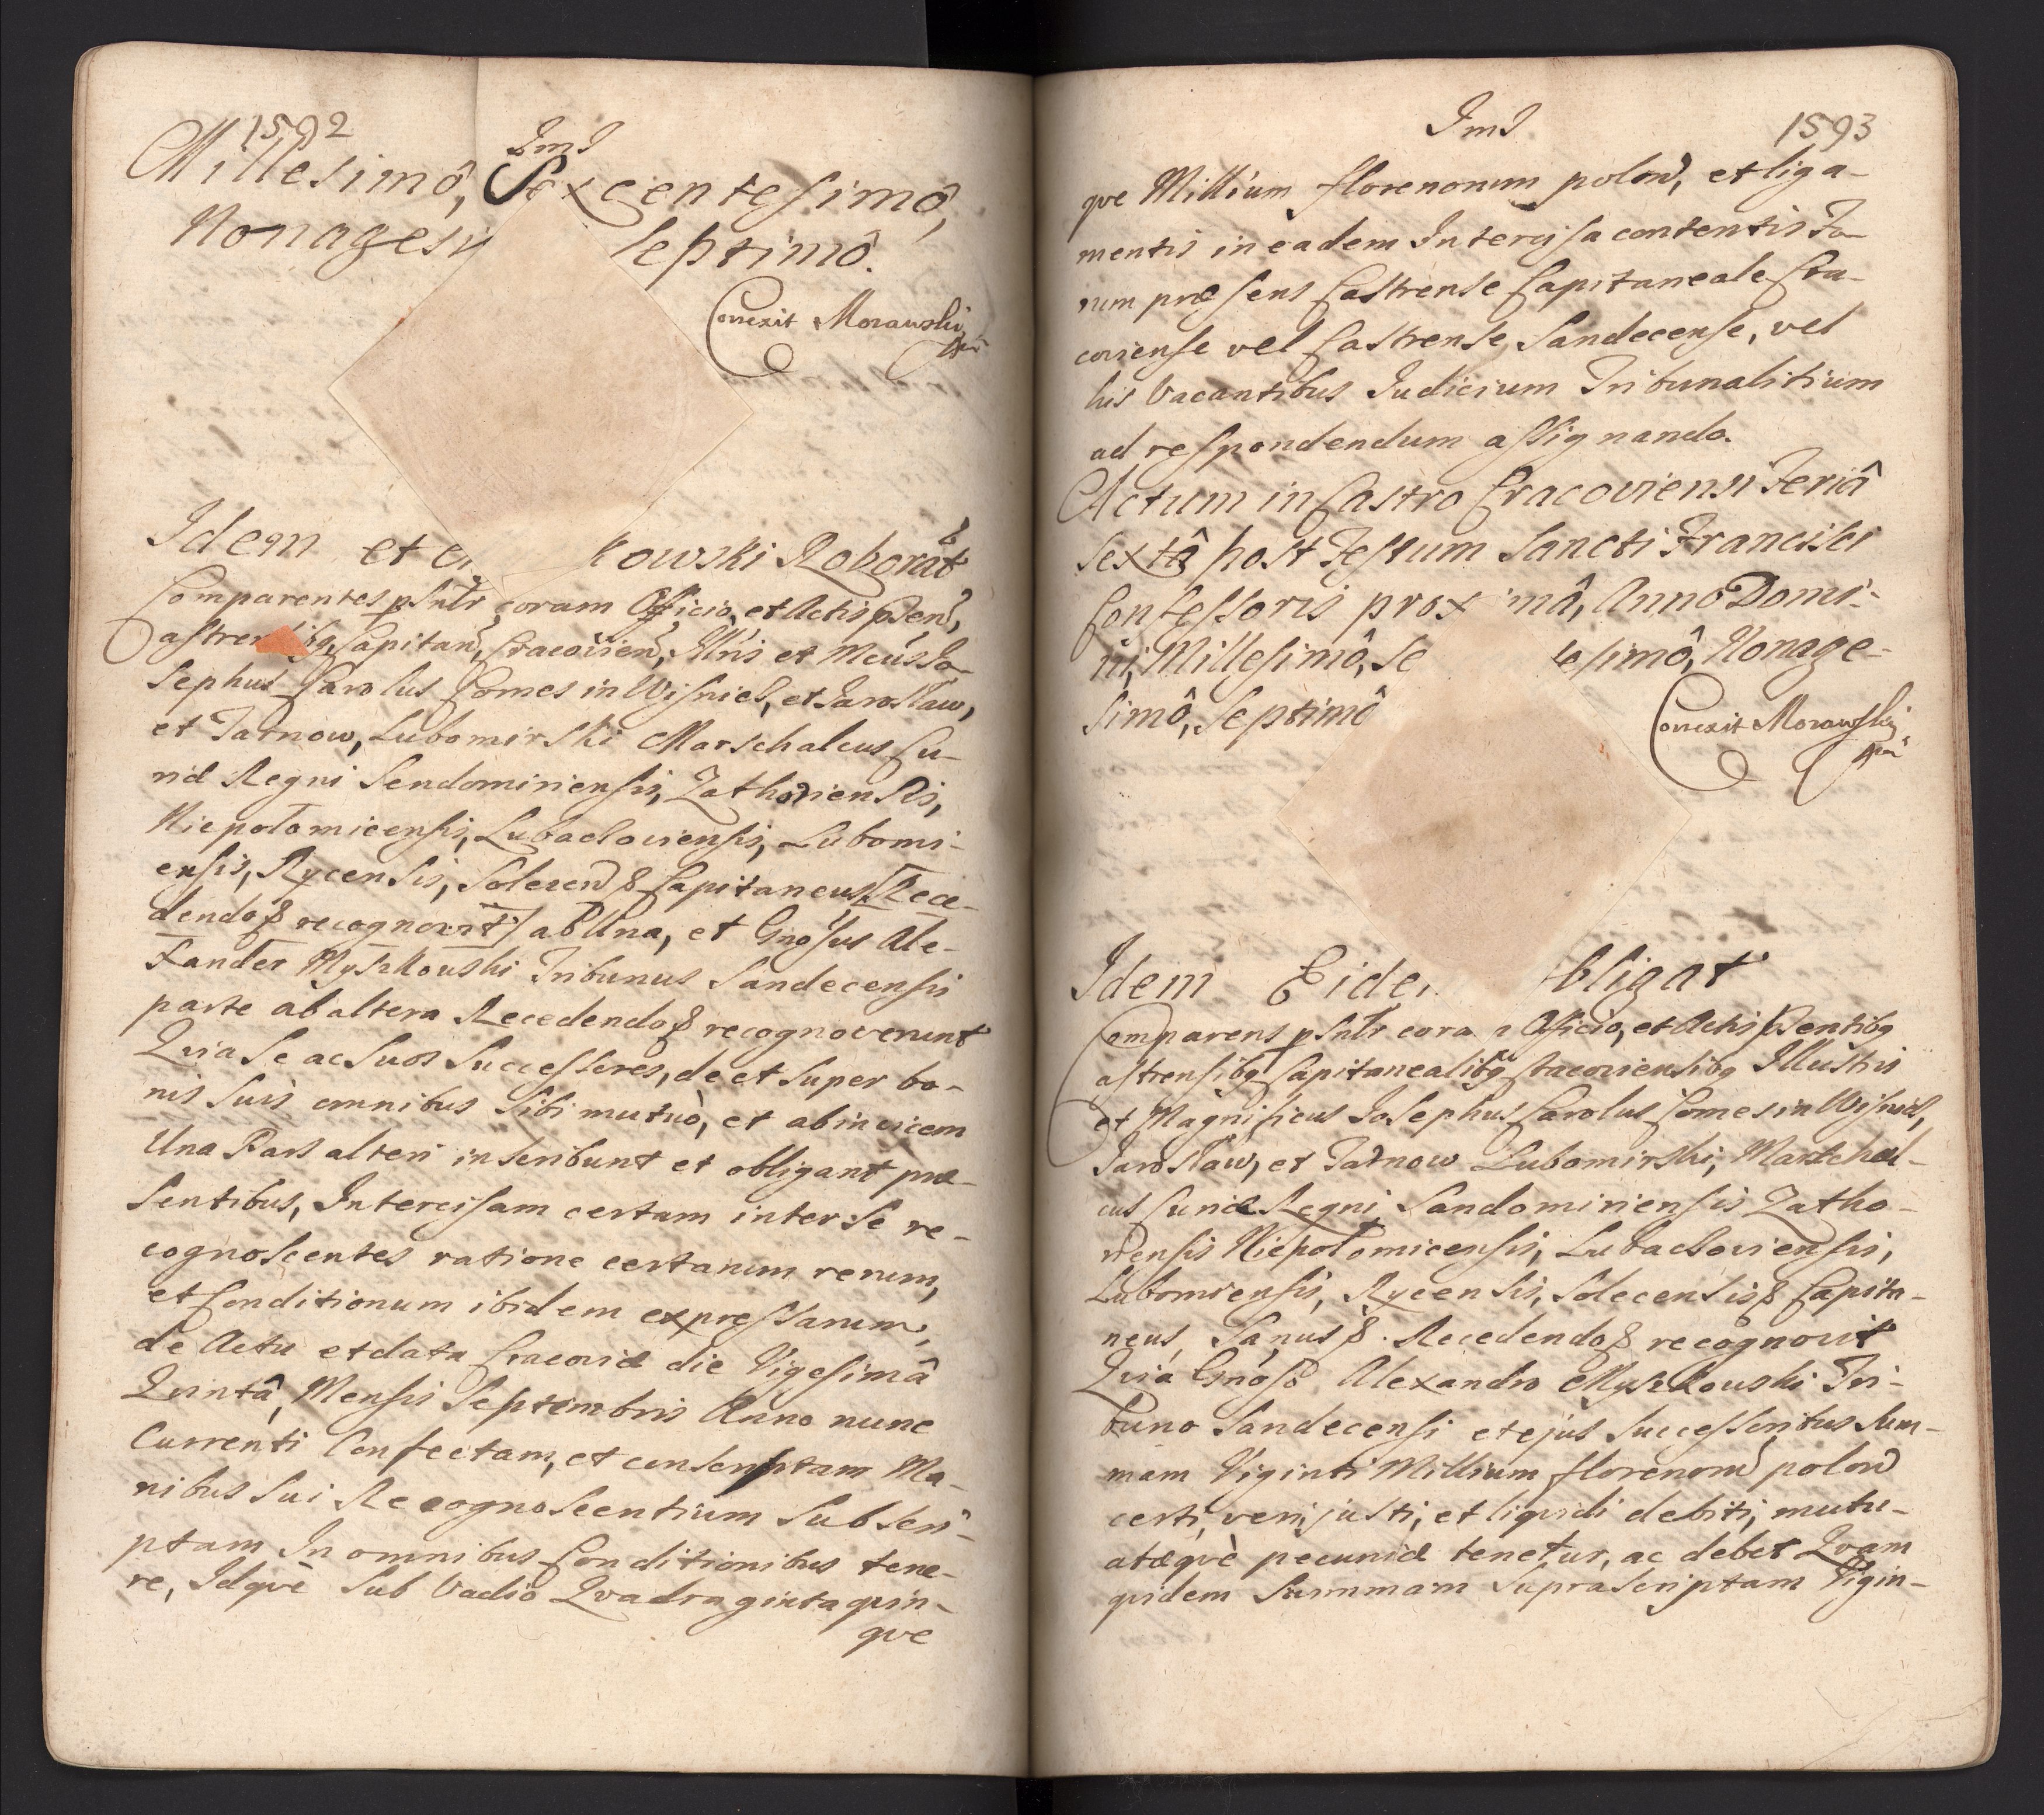 1592
Jms
Millesimô, Sexcentesimô,
Nonagesi Septimô.
Correxit Morawski
Idem et e kowski Roborat
Comparentes psnlr coram Officio, et Actis psen,
astren ibg, Capitan, Cracovien, Illris et Mcus Jo-
sephus Carolus Comes in Wisnicz, et Jarosław,
et Tarnow, Lubomirski Marschalcus Cu-
riæ Regni Sendomiriensis, Zathoriensis,
Niepołomicensis, Lubaczoviensis, Lubomi-
ensis, Rycensis, Solecen & Capitaneus, Rece-
dendo & recognovit ab Una, et Gnosus Ale-
xander Myszkowski Tribunus Sandecensis
parte ab altera Recedendo & recognoverunt
Quia Se ac Suos Successores, de et Super bo-
nis Suis omnibus Sibi mutuò, et ab invicem
Una Pars alteri inscribunt et obligant præ-
sentibus, Intercisam certam inter Se re-
cognoscentes ratione certarum rerum,
et Conditionum ibidem expressarum,
de Actu et data Cracoviæ die Vigesimâ
Quintâ, Mensis Septembris Anno nunc
Currenti Confectam, et conscriptam Ma-
nibus Sui Recognoscentium Subscri-
ptam In omnibus Conditionibus tene-
re, Idquè Sub Vadio Quadraginta quin-
que
Jms
1593
que Millium florenorum polon, et liga-
mentis in eadem Intercisa contentis Fo-
rum præsens Castrense Capitaneale Cra-
coviense vel Castrense Sandecense, vel
his Vacantibus Judicium Tribunalitium
ad respondendum assignando.
Actum in Castro Cracoviensi Feriâ
Sextâ post Festum Sancti Francisci
Confessoris prox mâ, Anno Domi-
ni, Millesimô, Se tesimô, Nonage-
simô, Septimô
Correxit Morawski
Idem Eide bligat
Comparens psnlr cora Officio, et Actis psentibg
astrensibg Capitanealibg Cracoviensibg Illustris
et Magnificus Josephus Carolus Comes in Wisnicz,
Jarosław, et Tarnow Lubomirski, Marschal-
cus Curiæ Regni Sandomiriensis Zatho-
riensis Niepołomicensis, Lubaczoviensis,
Lubomiensis, Rycensis, Solecensis & Capita-
neus, Sanus & Recedendo & recognovit
Quia Gnoso Alexandro Myszkowski Tri-
buno Sandecensi et ejus Successoribus Sum-
mam Viginti Millium florenorum polon
certi, veri, justi, et liquidi debiti, mutu-
atæquè pecuniæ tenetur, ac debet Quam
quidem Summam Suprascriptam Vigin-